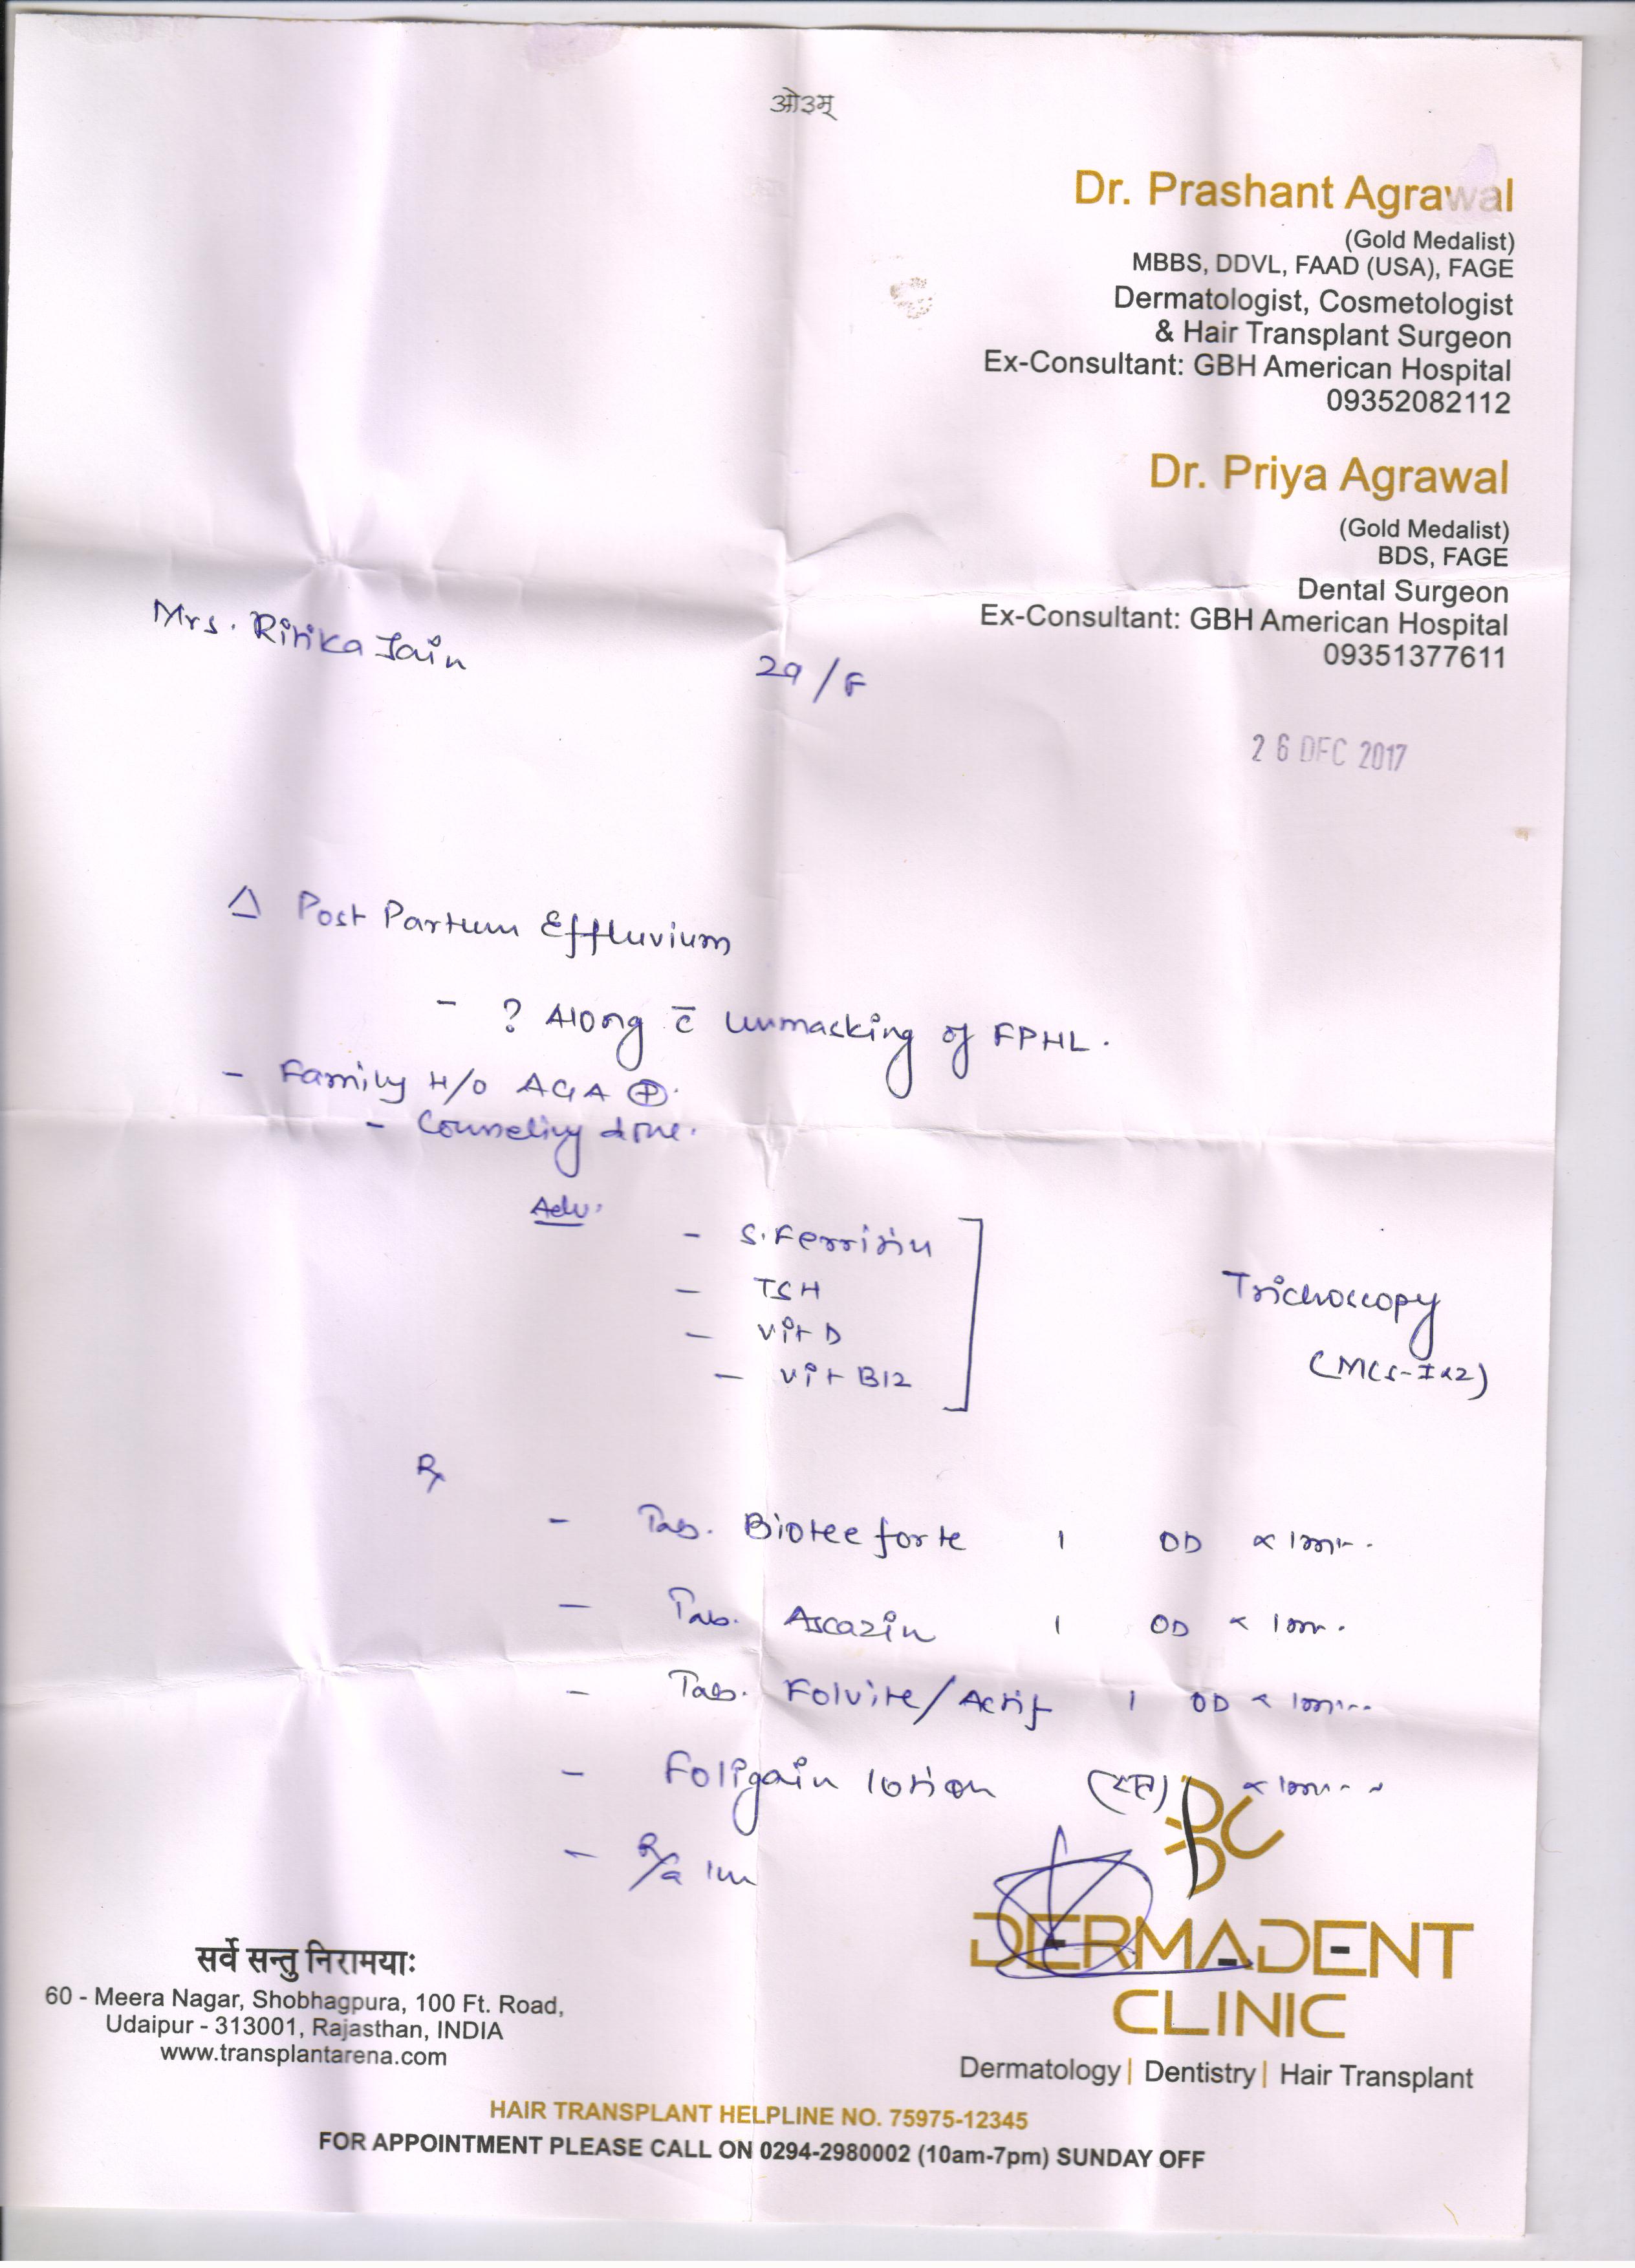 ओ३म्
Dr. Prashant Agrawal
(Gold Medalist)
MBBS, DDVL, FAAD (USA), FAGE
Dermatologist, Cosmetologist
& Hair Transplant Surgeon
Ex-Consultant: GBH American Hospital
09352082112
Dr. Priya Agrawal
(Gold Medalist)
BDS, FAGE
Dental Surgeon
Ex-Consultant: GBH American Hospital
09351377611
Mrs. Ritika Jain 29/F
26 DEC 2017
Δ Post Partum Effluvium
- ? Along c̄ unmasking of FPHL.
- Family H/O AGA ⊕.
- Counseling done.
Adv.
- S. Ferritin
- TSH
- Vit D
- Vit B12
Trichoscopy
Rx
- Tab. Biotee forte 1 OD x 1
- Tab. Ascazin 1 OD x 1
- Tab. Folvite/Actif 1 OD x 1
- Foligain lotion x 1
-
DC
DERMADENT
CLINIC
Dermatology | Dentistry | Hair Transplant
सर्वे सन्तु निरामयाः
60 - Meera Nagar, Shobhagpura, 100 Ft. Road,
Udaipur - 313001, Rajasthan, INDIA
www.transplantarena.com
HAIR TRANSPLANT HELPLINE NO. 75975-12345
FOR APPOINTMENT PLEASE CALL ON 0294-2980002 (10am-7pm) SUNDAY OFF